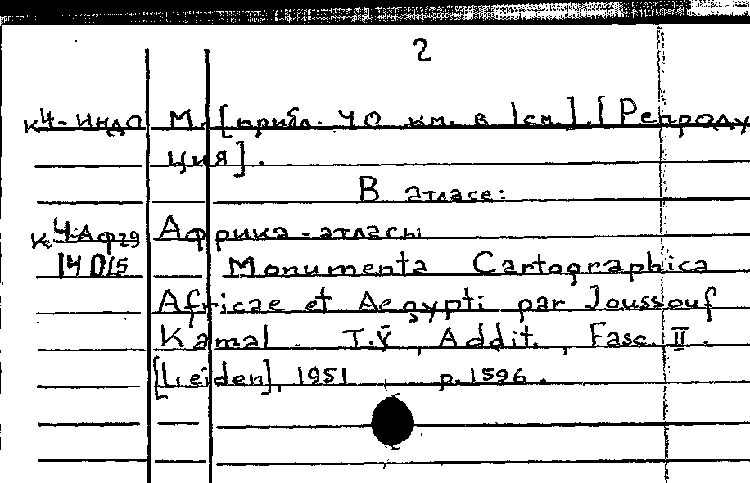 2
К4-Индо М. [прибл. 40 км. в 1см]. [Репроду
ция].
В атласе:
К4-Афр29 Африка - атласы
14 015 Monumenta Cartographica
Africae et Aegypti par Joussouf
Kamal T.V, Addit., Fasc. II.
[Leiden], 1951 p. 1596.